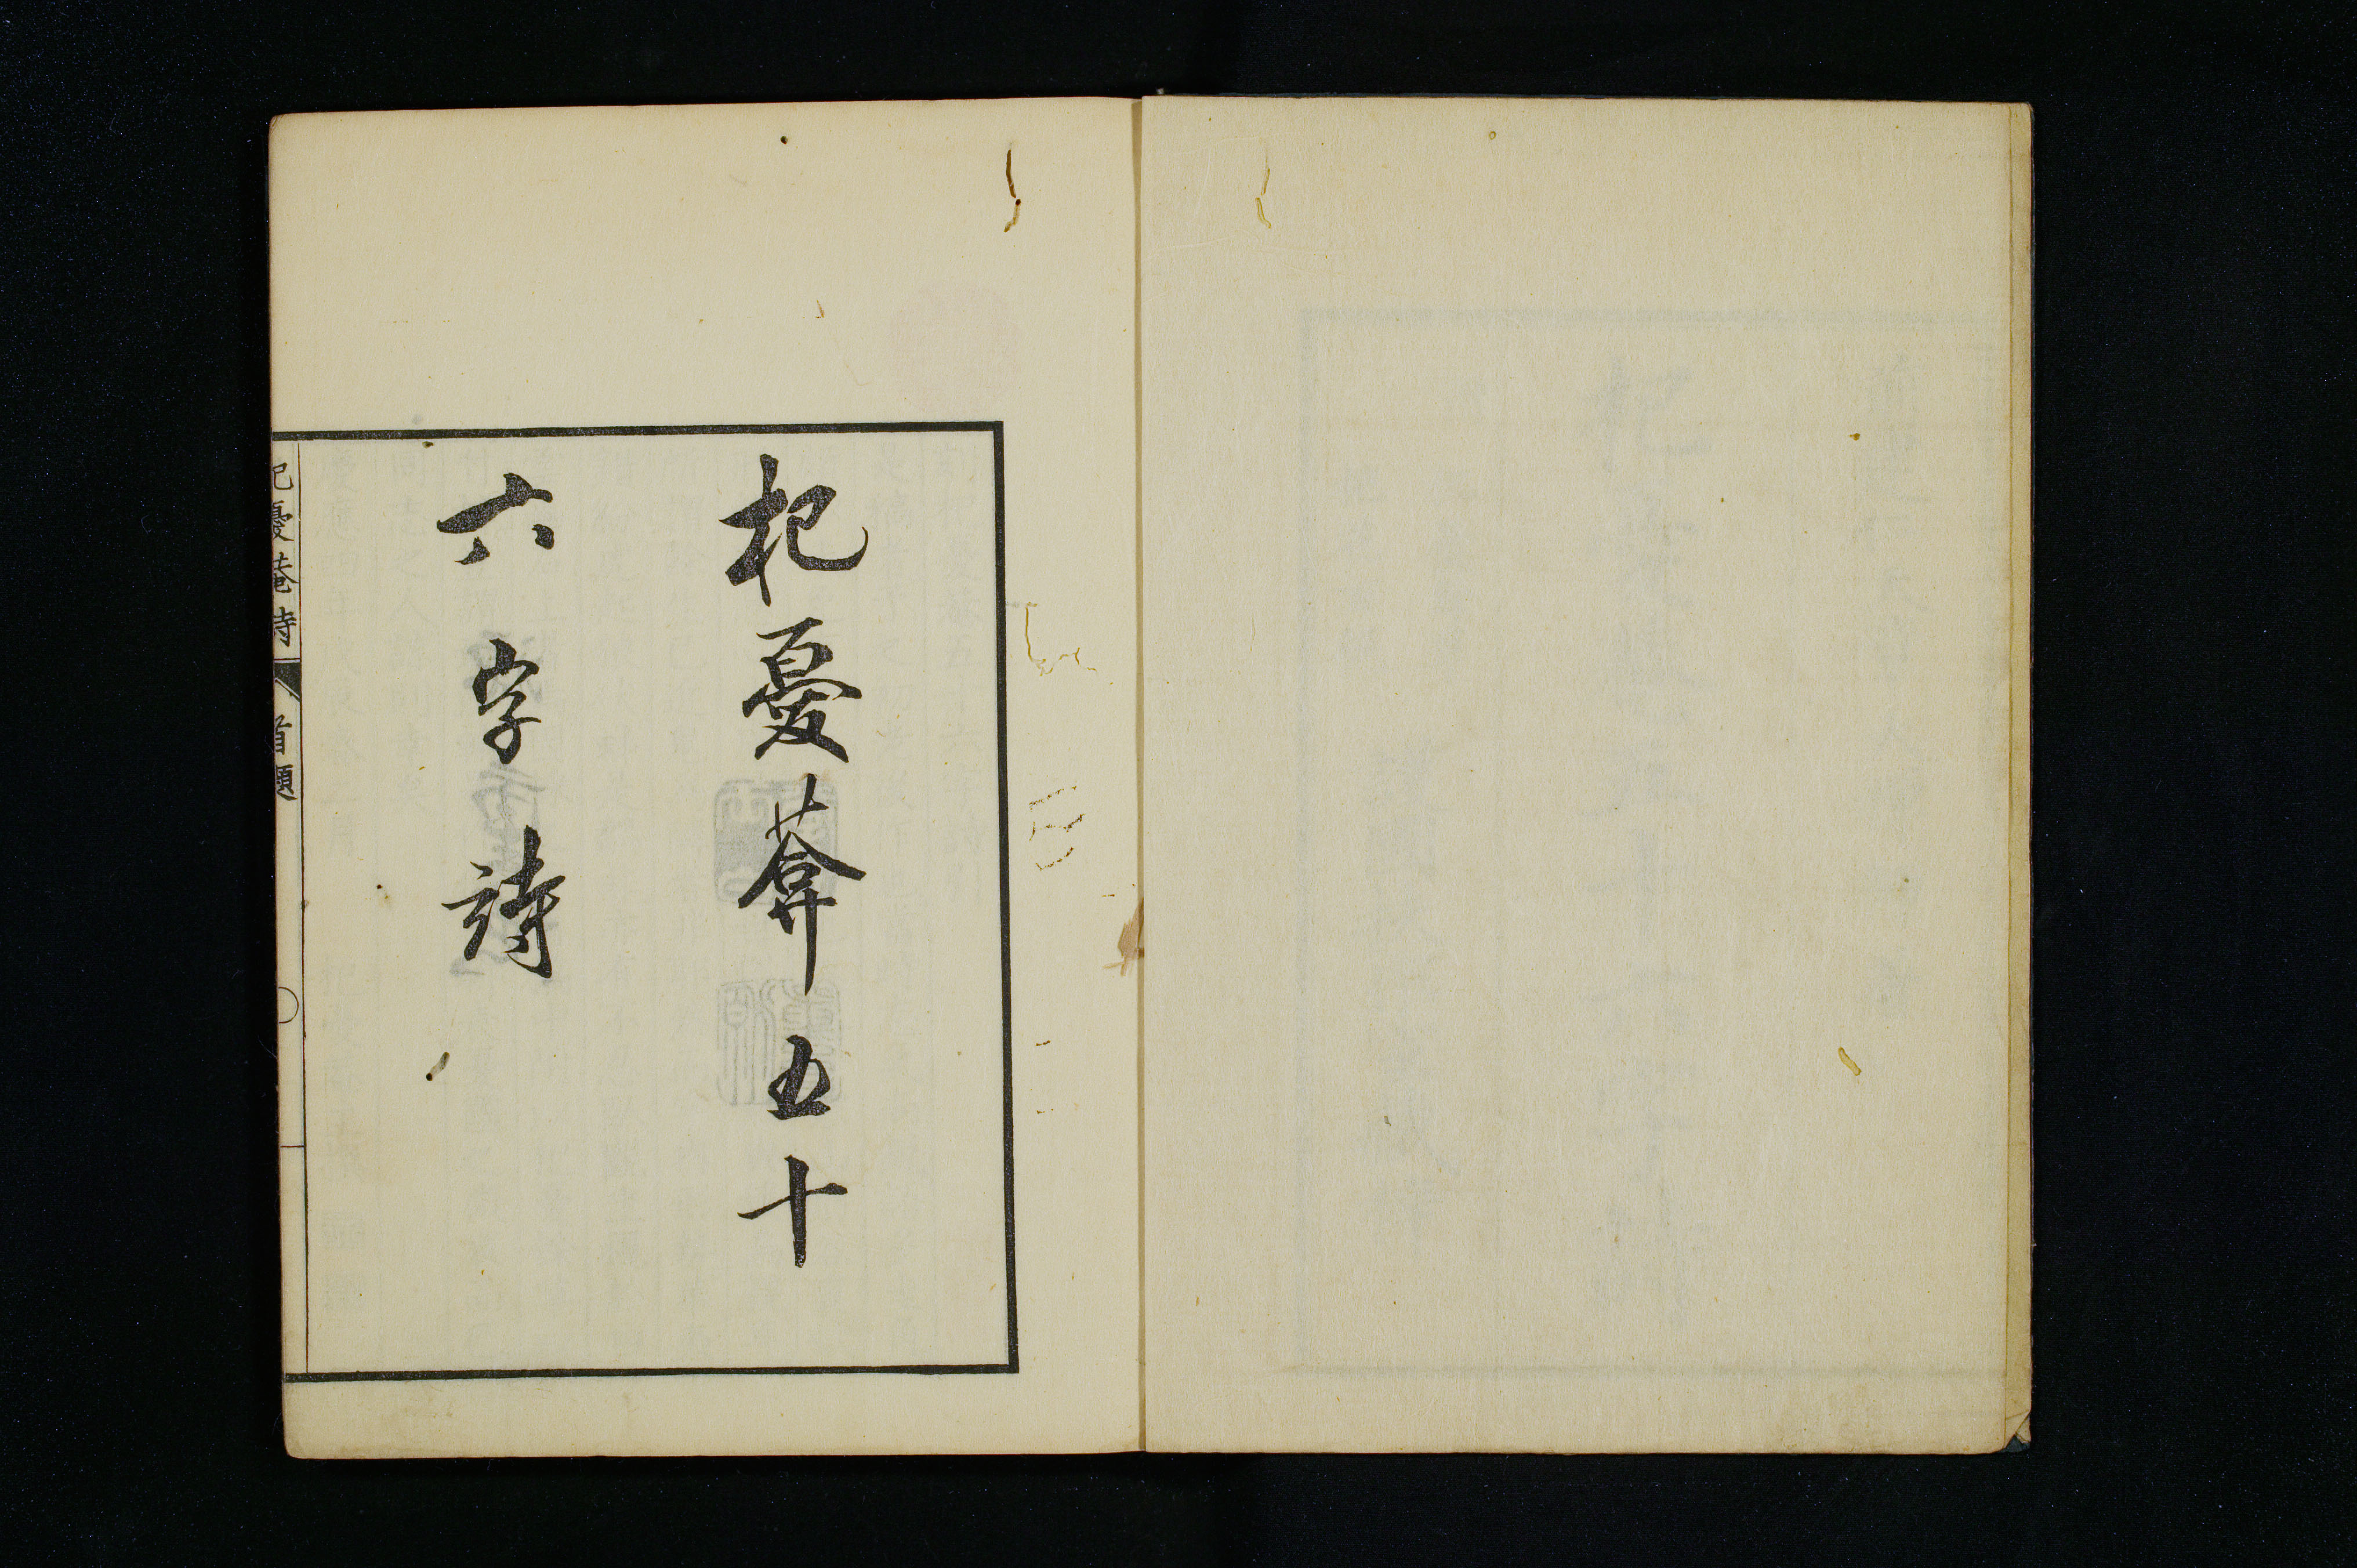 杞憂葊五十
六字詩
杞憂菴詩 首題